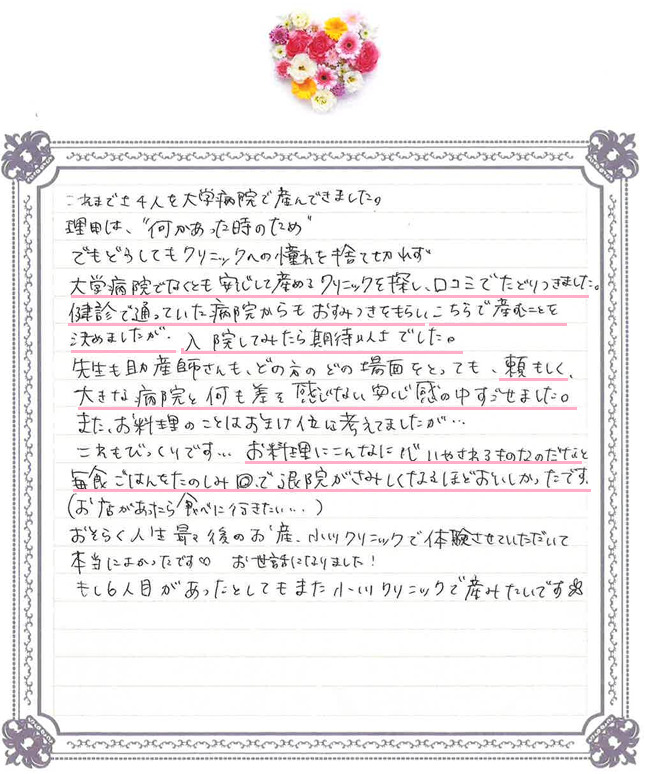 これまで4人を大学病院で産んできました。
理由は、"何かあった時のため"
でもどうしてもクリニックへの憧れを捨て切れず
大学病院でなくとも安心して産めるクリニックを探し、口コミでたどりつきました。
健診で通っていた病院からもおすみつきをもらいこちらで産むことを
決めましたが、入院してみたら期待以上でした。
先生も助産師さんも、どの方のどの場面をとっても、頼もしく、
大きな病院と何も差を感じない安心感の中すごせました。
また、お料理のことはおまけ位に考えてましたが…
これもびっくりです… お料理にこんなに心いやされるものなのだなと
毎食ごはんをたのしみ で退院がさみしくなるほどおいしかったです。
(お店があったら食べに行きたい…)
おそらく人生最後のお産、小川クリニックで体験させていただいて
本当によかったです♡ お世話になりました!
もし6人目があったとしてもまた小川クリニックで産みたいです